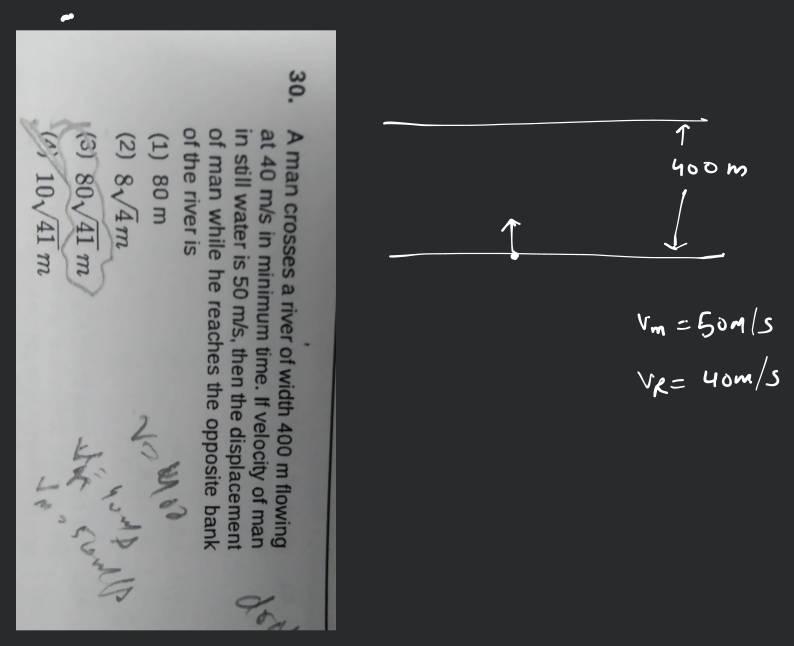 30. A man crosses a river of width 400 m flowing
at 40 m/s in minimum time. If velocity of man
in still water is 50 m/s, then the displacement
of man while he reaches the opposite bank
of the river is
(1) 80 m
(2) 8√4 m
(3) 80√41 m
(4) 10√41 m
400 m
Vm = 50m/s
VR = 40m/s